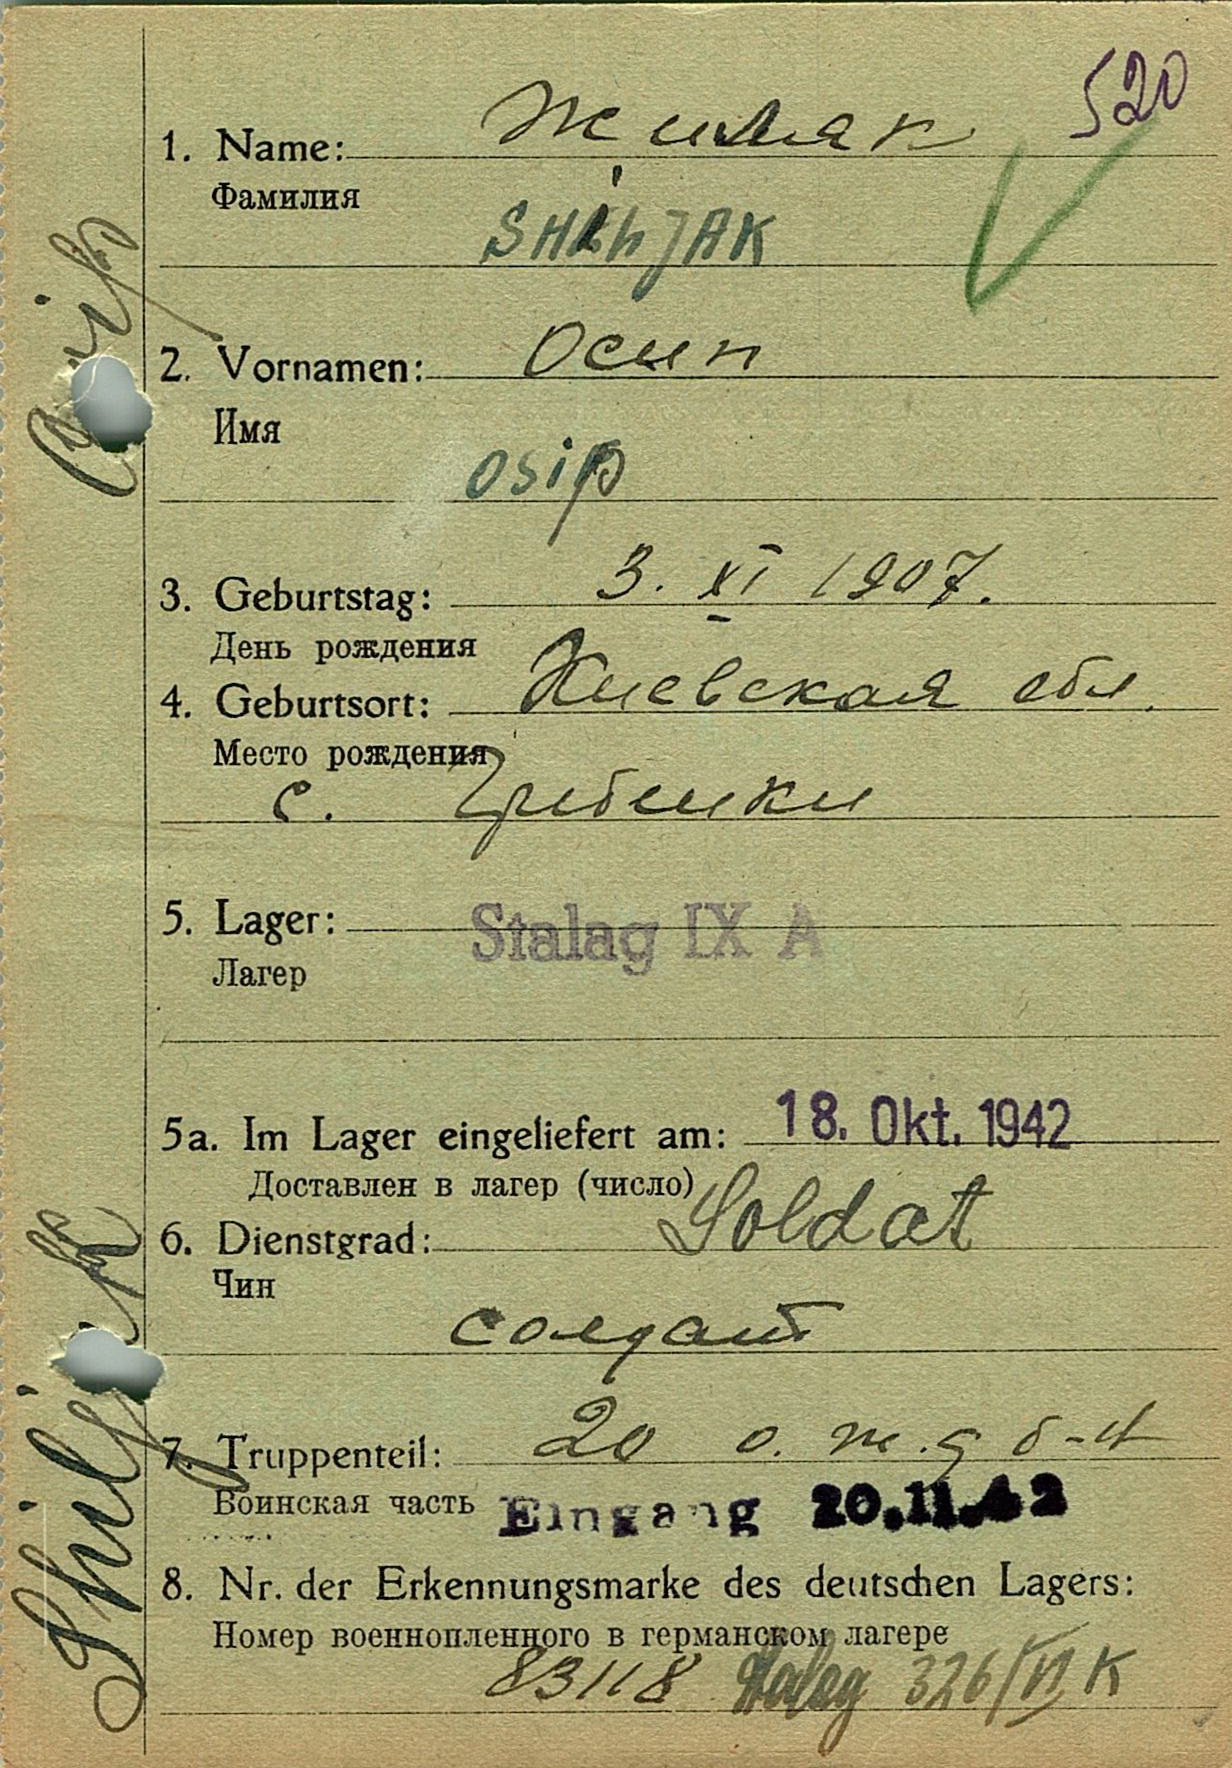 520
1. Name: Жиляк
Фамилия
SHILJAK
2. Vornamen: Осип
Имя
Osip
3. Geburtstag: 3. XI 1907.
День рождения
4. Geburtsort: Киевская обл.
Место рождения
с. Гребенки
5. Lager: Stalag IX A
Лагер
5a. Im Lager eingeliefert am: 18. Okt. 1942
Доставлен в лагер (число)
6. Dienstgrad: Soldat
Чин
солдат
7. Truppenteil: 20 о. ж. д б-н
Воинская часть Eingang 20.11.42
8. Nr. der Erkennungsmarke des deutschen Lagers:
Номер военнопленного в германском лагере
83118 Stalag 326/VI K
Shiljak Osip